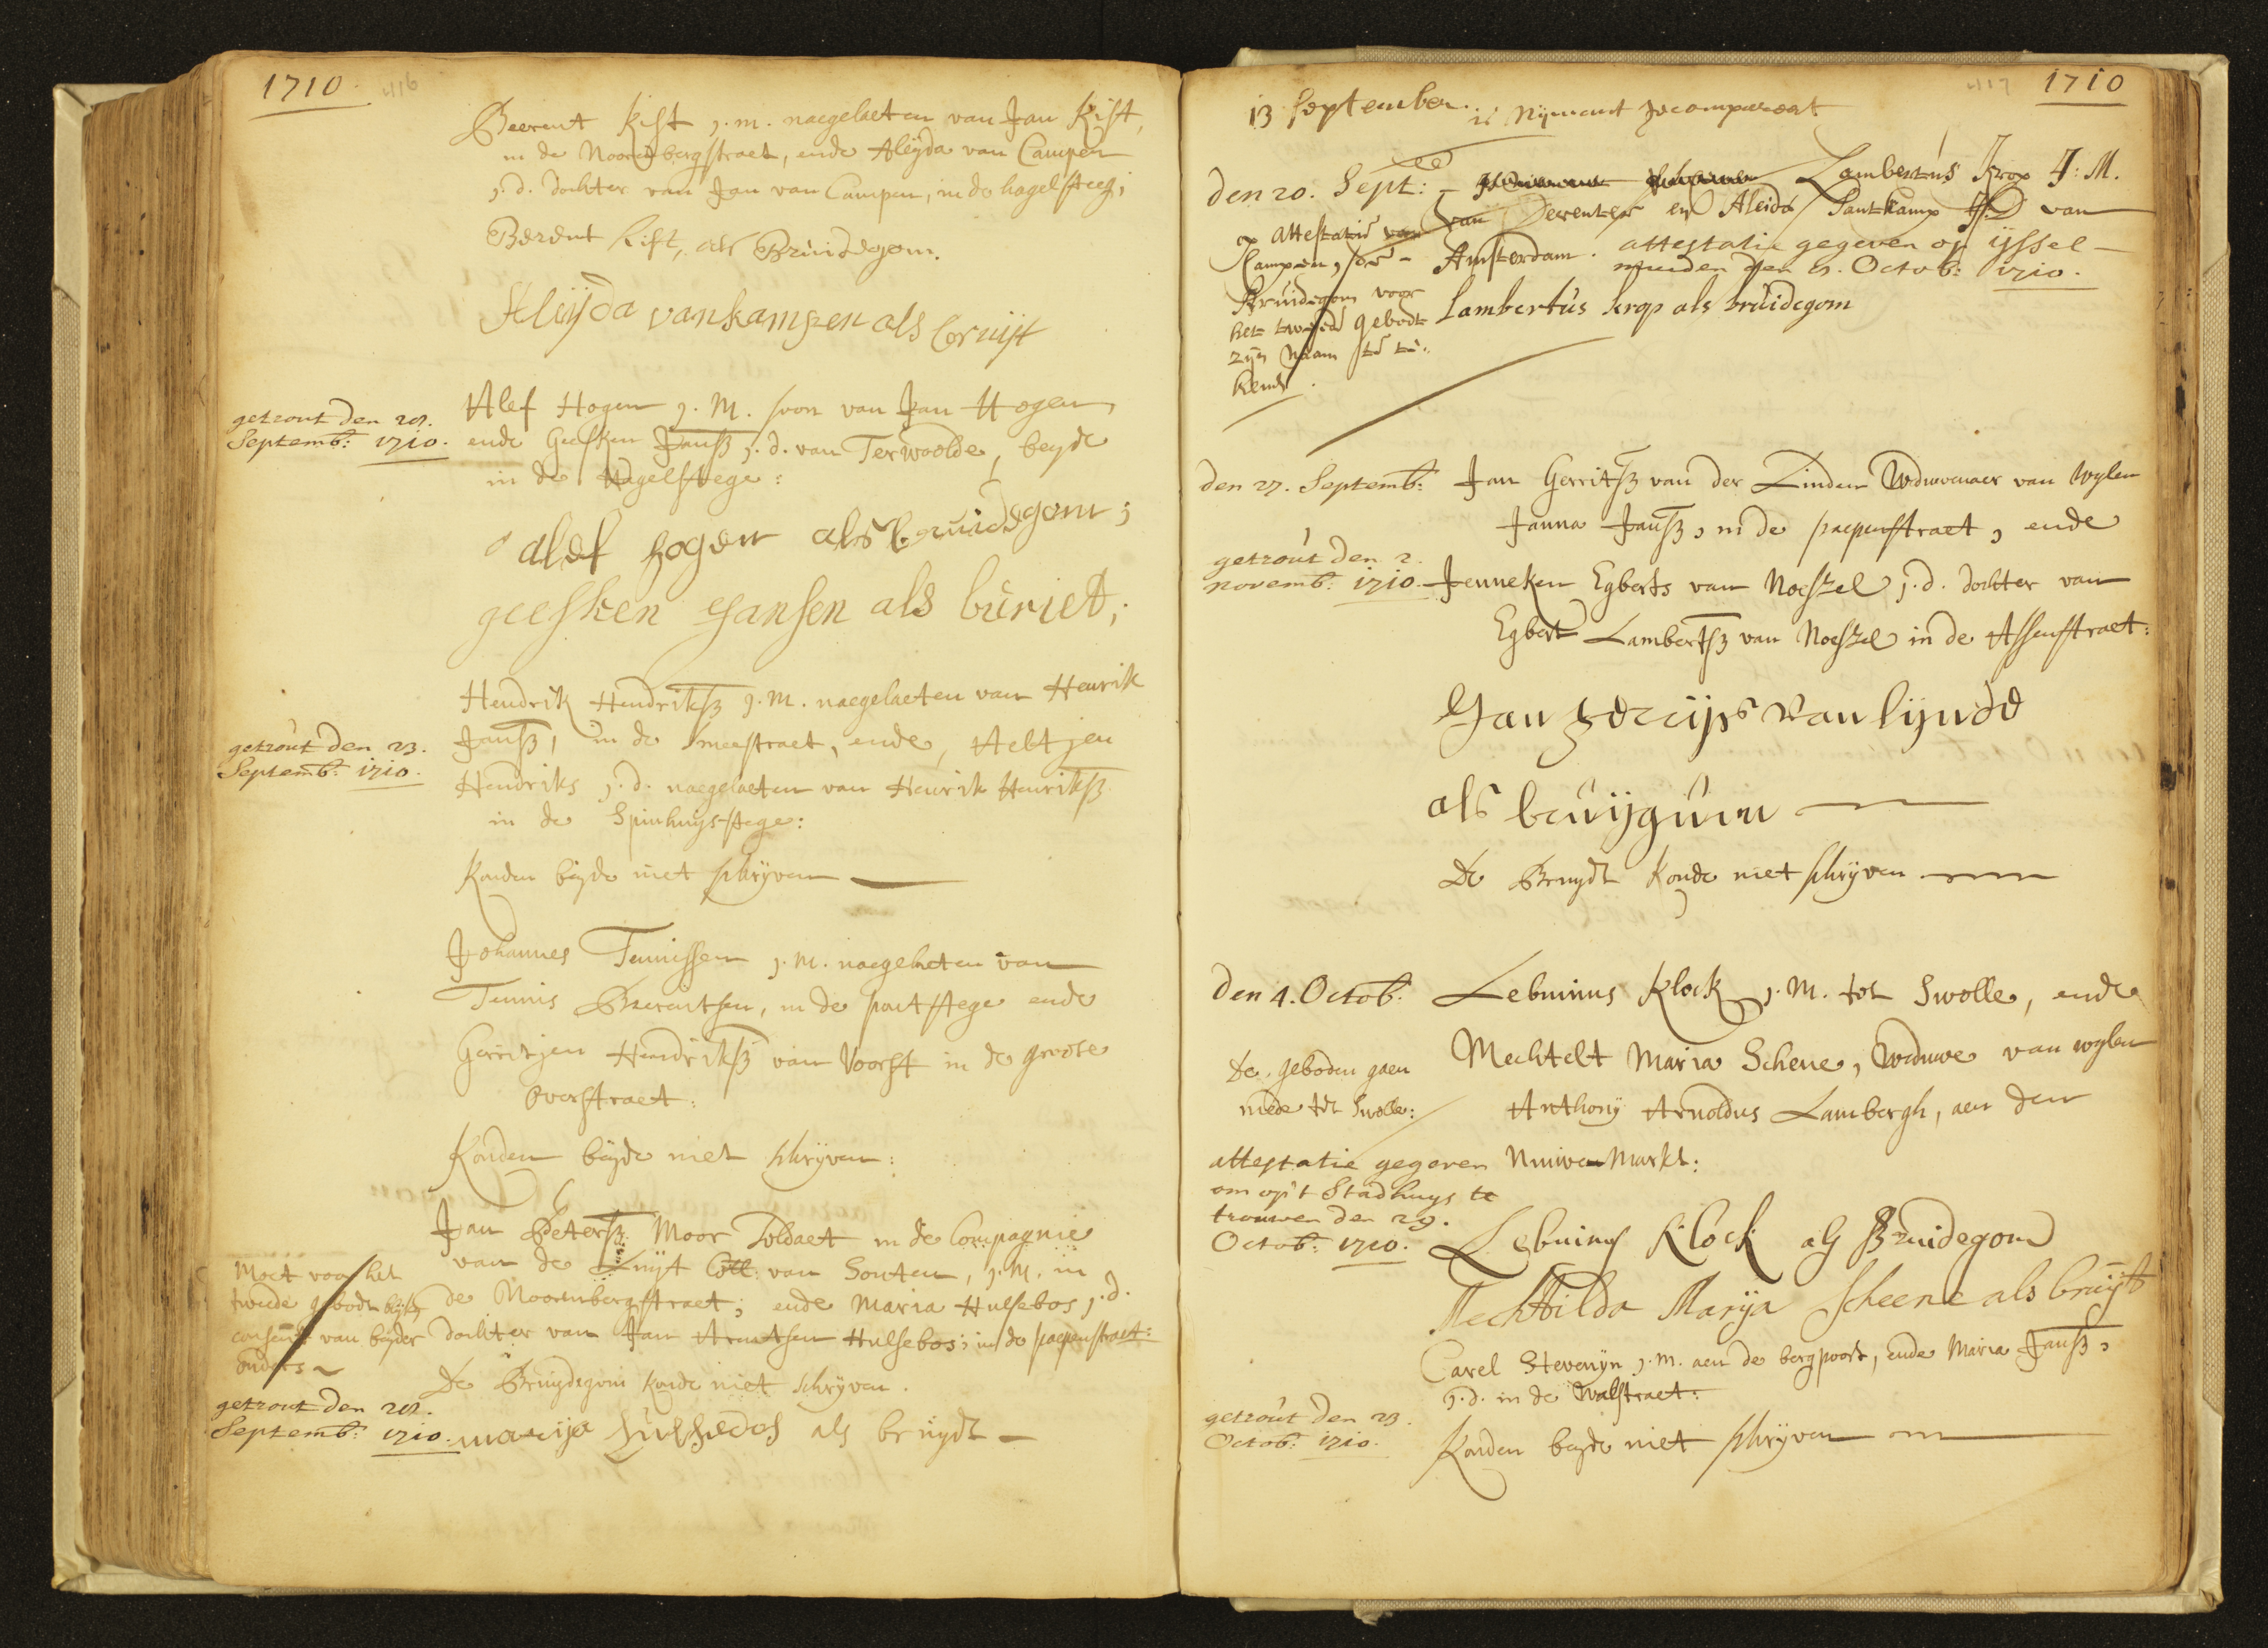 1710. 416
Beerent Kist j.m. naegelaeten van Jan Kist,
in de Noorenbergstraet, ende Aleyda van Campen
j.d. dochter van Jan van Campen, in de hagelsteeg;
Berent Kist, als Bruidegom.
Aleijda van kampen als bruijt
getrout den
Septemb: 1710.
Alef Hogen j.M. soon van Jan Hogen,
ende Geesken Janss j.d. van Terwolde, beyde
in de Hagelstege:
alef hogen als bruidegom;
geesken Jansen als buriet;
getrout den 23.
Septemb: 1710.
Hendrik Hendrikss j.M. naegelaeten van Henrik
Janss, in de Smeestraet, ende, Aeltjen
Hendriks j.d. naegelaeten van Henrik Henrikss
in de Spinhuys-stege:
Konden beyde niet schryven
Johannes Teunissen j.M. naegelaeten van
Teunis Beerentsen, in de pootstege ende
Gerritjen Hendrikss van Voorst in de groote
Overstraet:
Konden beyde niet schryven:
Jan Peterss Moor Soldaet in de Compagnie
van de Luyt Coll: van Souten, j.M. in
de Noorenbergstraet; ende Maria Hulsebos j.d.
dochter van Jan Arentsen Hulsebos; in de papenstraet:
Moet voor het
tweede gebodt blyken
consent van beyder
ouders
De Bruydegom konde niet schryven.
getrout den
Septemb: 1710.
marija hulsebos als bruydt
417 1710
13 September. is Nymant gecompareert
den 20. Sept: Lambertus Krop J:M.
van Deventer en Aleida Santkamp J:D van
Amsterdam. attestatie gegeven op ijssel-
muiden den 11. Octob: 1710.
op attestatie van
Kampen, de
Bruidegom voor
het tweede gebodt
zyn Naam te te-
kenen.
Lambertus krop als bruidegom
den 27. Septemb: Jan Gerritss van der Linden Weduwenaer van Wylen
Janna Janss, in de papenstraet, ende
getrout den 2.
novemb: 1710.
Jenneken Egberts van Noeszel j.d. dochter van
Egbert Lambertss van Noeszel in de Assenstraet:
Jan gerrijs van lijnde
als bruijgum
De Bruydt konde niet schryven
den 4. Octob: Lebuinus Klock j.M. tot Swolle, ende
Mechtelt Maria Schene, Weduwe van wylen
Anthony Arnoldus Lambergh, aen den
Nieuwen Markt:
De geboden gaen
mede tot Swolle:
attestatie gegeven
om op't Stadhuys te
trouwen den 29.
Octob: 1710.
Lebuinus Klock als Bruidegom
Mechtilda Marija Scheene als bruijt
Carel Stevenyn j.M. aen de bergpoort, ende Maria Janss,
j.d. in de Walstraet:
getrout den 23.
Octob: 1710.
Konden beyde niet schryven